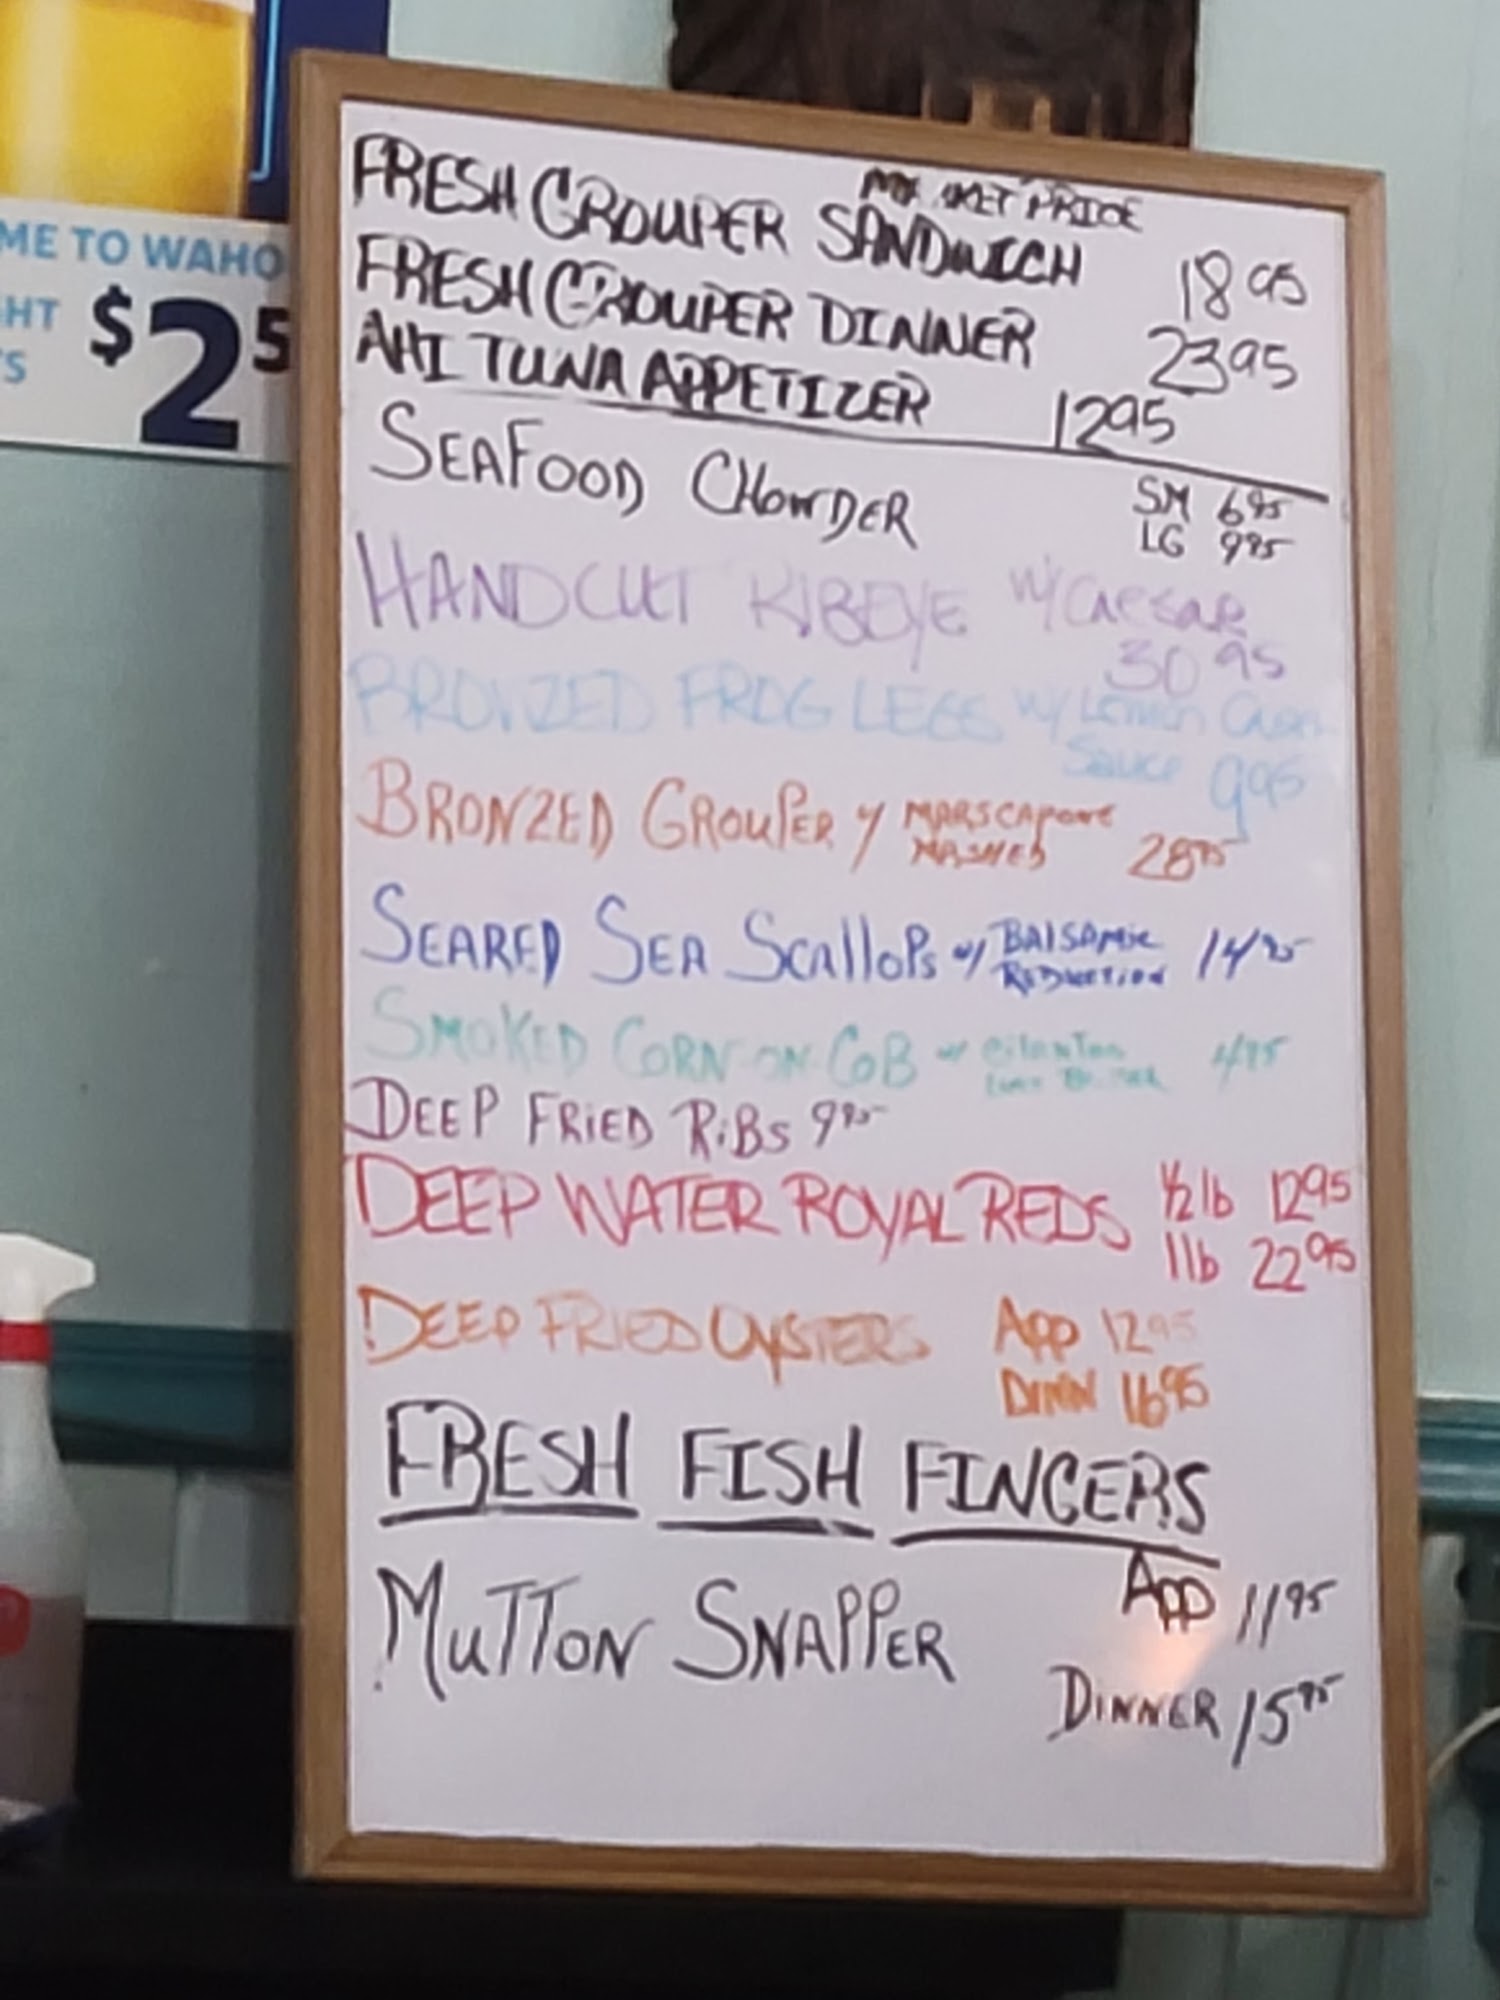 ME TO WAHO
HT
S
$2 5
MARKET PRICE
FRESH GROUPER SANDWICH 18 95
FRESH GROUPER DINNER 23 95
AHI TUNA APPETIZER 12 95
SEAFOOD CHOWDER SM 6 95
LG 9 95
HANDCUT RIBEYE W/ CAESAR
30 95
BRONZED FROG LEGS W/ LEMON
SAUCE 9 95
BRONZED GROUPER W/ MARSCAPONE
MASHED 28 95
SEARED SEA SCALLOPS W/ BALSAMIC 14 95
REDUCTION
SMOKED CORN-ON-COB W/ 4 95
DEEP FRIED RIBS 9 95
DEEP WATER ROYAL REDS 1/2 lb 12 95
1 lb 22 95
DEEP FRIED OYSTERS APP 12 95
DINN 16 95
FRESH FISH FINGERS
APP 11 95
MUTTON SNAPPER
DINNER 15 95